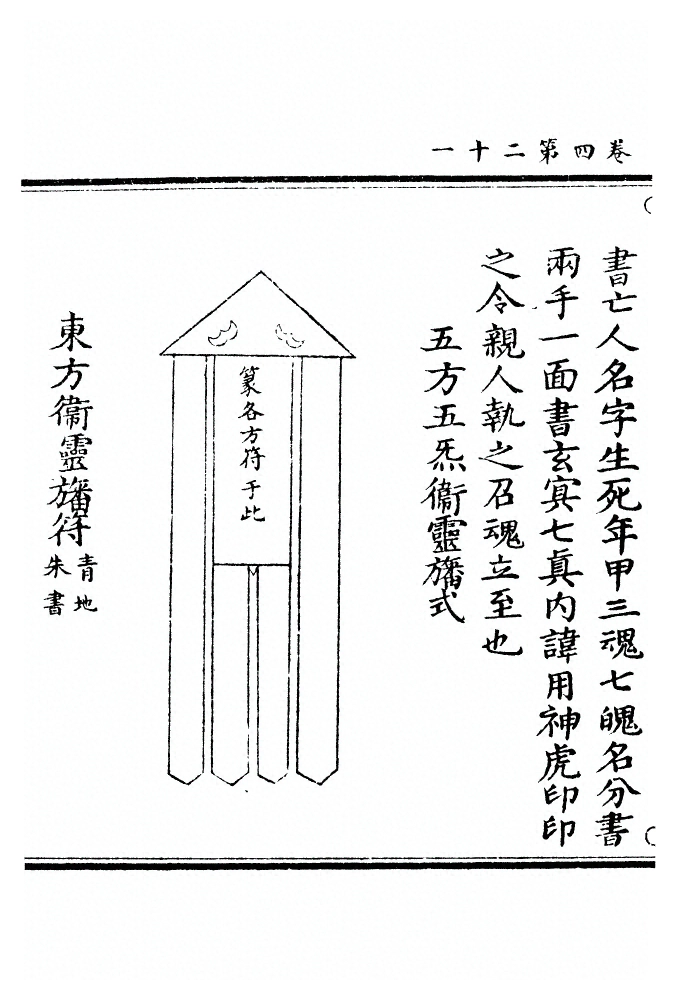 卷四第二十一
書亡人名字生死年甲三魂七魄名分書
兩手一面書玄㝠七真内諱用神虎印印
之令親人執之召魂立至也
五方五炁衞靈旛式
篆各方符于此
東方衞靈旛符
青地
朱書